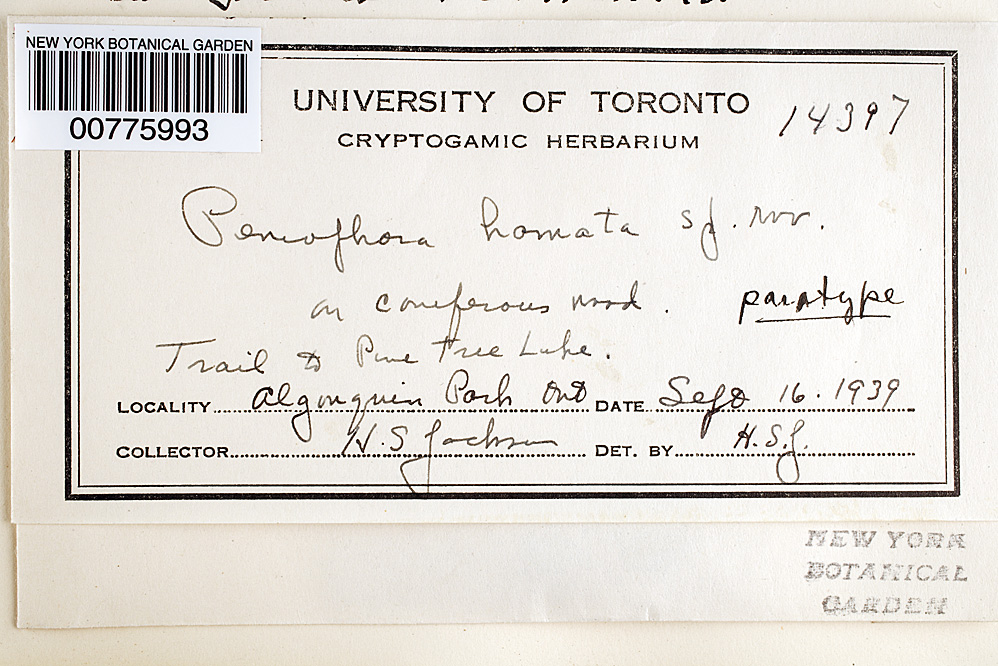 NEW YORK BOTANICAL GARDEN
00775993
UNIVERSITY OF TORONTO
14397
CRYPTOGAMIC HERBARIUM
Peniophora hamata sp. nov.
on coniferous wood. paratype
Trail to Pine Tree Lake.
LOCALITY Algonquin Park Ont DATE Sept 16. 1939
COLLECTOR H. S Jackson DET. BY H. S. J.
NEW YORK
BOTANICAL
GARDEN